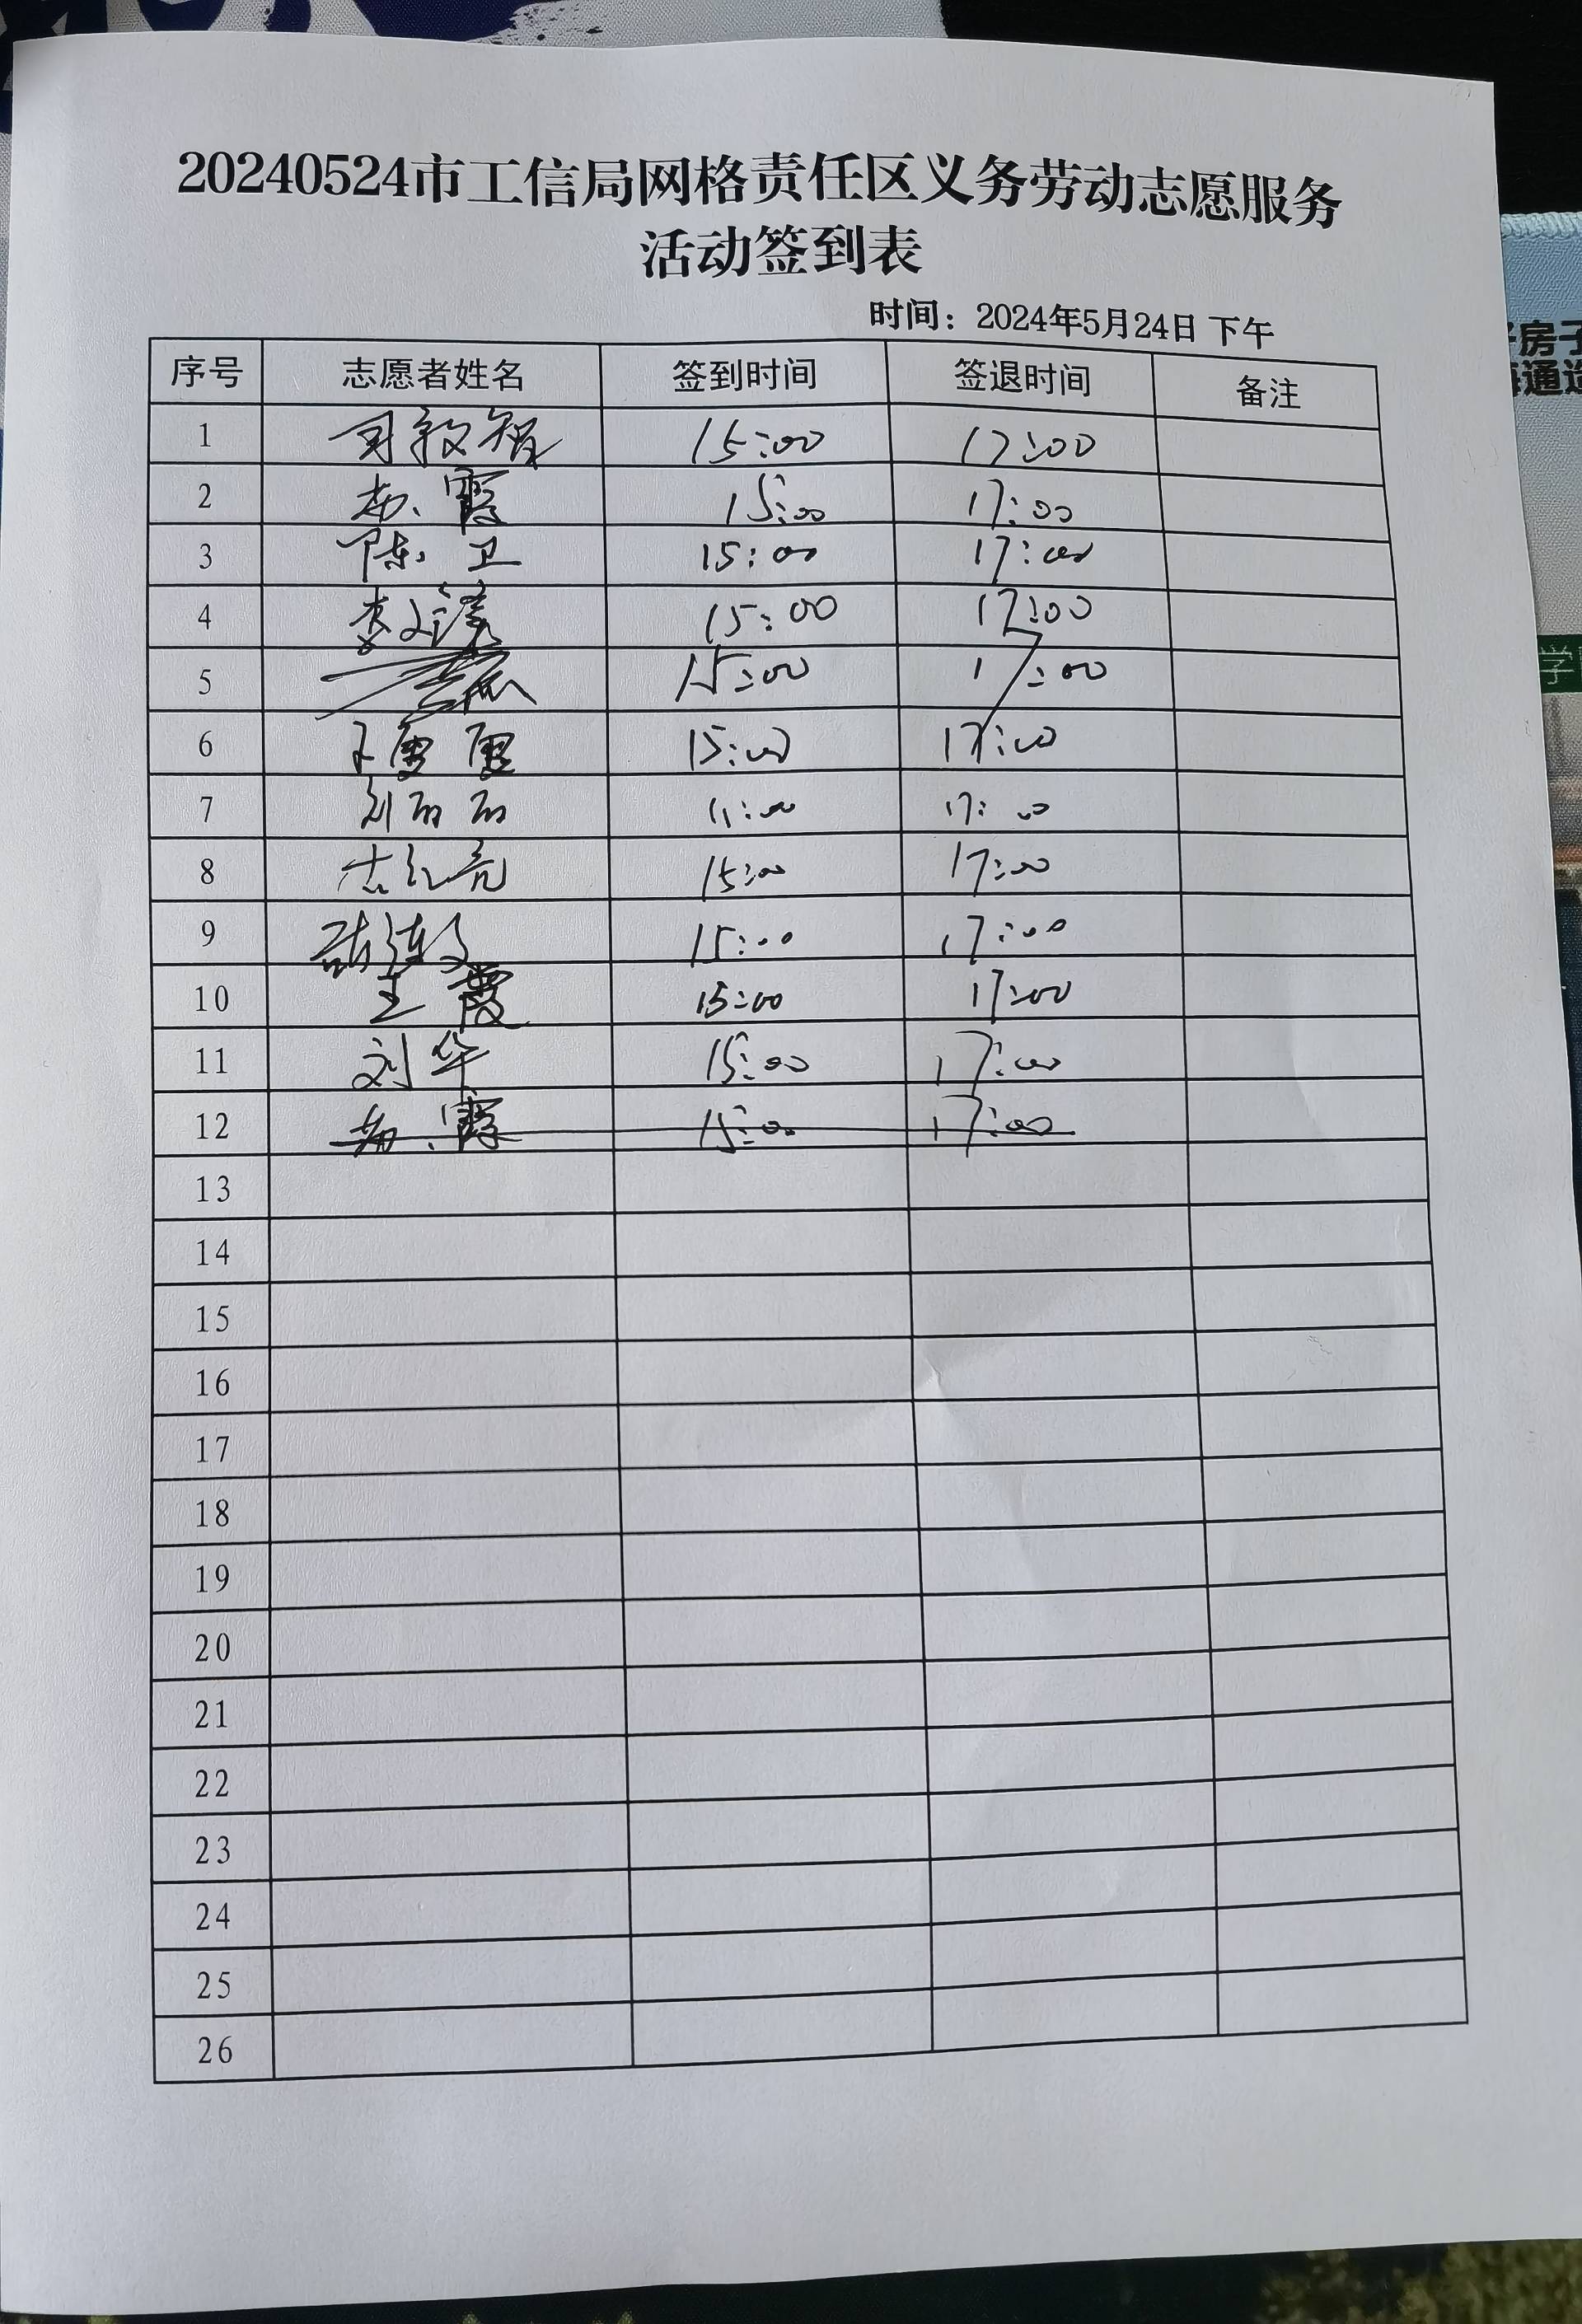 20240524市工信局网格责任区义务劳动志愿服务
活动签到表
时间：2024年5月24日 下午
序号 志愿者姓名 签到时间 签退时间 备注
1 15:00 17:00
2 霞 15:00 17:00
3 陈卫 15:00 17:00
4 李文 15:00 17:00
5 15:00 17:00
6 15:00 17:00
7 刘丽丽 17:00
8 亮 15:00 17:00
9 15:00 17:00
10 王霞 15:00 17:00
11 刘华 15:00 17:00
12 霞 15:00 17:00
13
14
15
16
17
18
19
20
21
22
23
24
25
26
房子
通
学